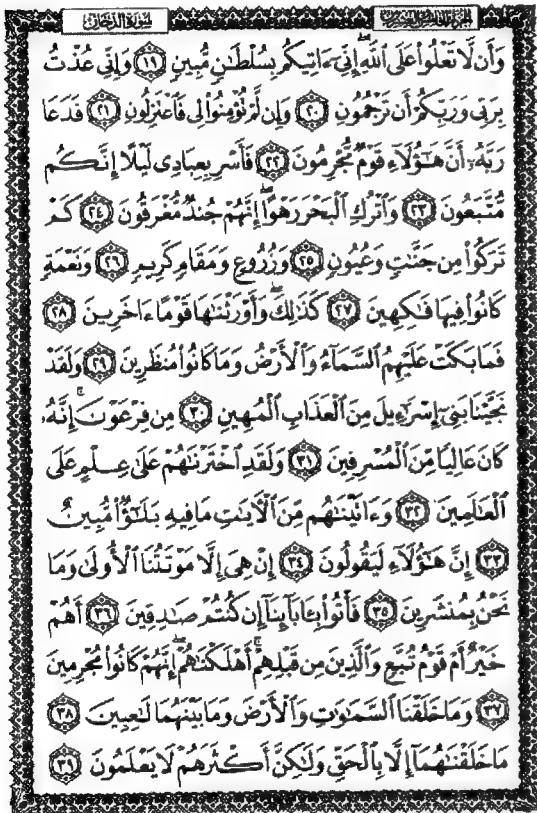 سُورَةُ الدُّخَانِ
وَأَن لَّا تَعْلُوا۟ عَلَى ٱللَّهِ ۖ إِنِّىٓ ءَاتِيكُم بِسُلْطَٰنٍ مُّبِينٍ ١٩ وَإِنِّى عُذْتُ
بِرَبِّى وَرَبِّكُمْ أَن تَرْجُمُونِ ٢٠ وَإِن لَّمْ تُؤْمِنُوا۟ لِى فَٱعْتَزِلُونِ ٢١ فَدَعَا
رَبَّهُۥٓ أَنَّ هَٰٓؤُلَآءِ قَوْمٌ مُّجْرِمُونَ ٢٢ فَأَسْرِ بِعِبَادِى لَيْلًا إِنَّكُم
مُّتَّبَعُونَ ٢٣ وَٱتْرُكِ ٱلْبَحْرَ رَهْوًا ۖ إِنَّهُمْ جُندٌ مُّغْرَقُونَ ٢٤ كَمْ
تَرَكُوا۟ مِن جَنَّٰتٍ وَعُيُونٍ ٢٥ وَزُرُوعٍ وَمَقَامٍ كَرِيمٍ ٢٦ وَنَعْمَةٍ
كَانُوا۟ فِيهَا فَٰكِهِينَ ٢٧ كَذَٰلِكَ ۖ وَأَوْرَثْنَٰهَا قَوْمًا ءَاخَرِينَ ٢٨
فَمَا بَكَتْ عَلَيْهِمُ ٱلسَّمَآءُ وَٱلْأَرْضُ وَمَا كَانُوا۟ مُنظَرِينَ ٢٩ وَلَقَدْ
نَجَّيْنَا بَنِىٓ إِسْرَٰٓءِيلَ مِنَ ٱلْعَذَابِ ٱلْمُهِينِ ٣٠ مِن فِرْعَوْنَ ۚ إِنَّهُۥ
كَانَ عَالِيًا مِّنَ ٱلْمُسْرِفِينَ ٣١ وَلَقَدِ ٱخْتَرْنَٰهُمْ عَلَىٰ عِلْمٍ عَلَى
ٱلْعَٰلَمِينَ ٣٢ وَءَاتَيْنَٰهُم مِّنَ ٱلْءَايَٰتِ مَا فِيهِ بَلَٰٓؤٌا۟ مُّبِينٌ
٣٣ إِنَّ هَٰٓؤُلَآءِ لَيَقُولُونَ ٣٤ إِنْ هِىَ إِلَّا مَوْتَتُنَا ٱلْأُولَىٰ وَمَا
نَحْنُ بِمُنشَرِينَ ٣٥ فَأْتُوا۟ بِـَٔابَآئِنَآ إِن كُنتُمْ صَٰدِقِينَ ٣٦ أَهُمْ
خَيْرٌ أَمْ قَوْمُ تُبَّعٍ وَٱلَّذِينَ مِن قَبْلِهِمْ ۚ أَهْلَكْنَٰهُمْ ۖ إِنَّهُمْ كَانُوا۟ مُجْرِمِينَ
٣٧ وَمَا خَلَقْنَا ٱلسَّمَٰوَٰتِ وَٱلْأَرْضَ وَمَا بَيْنَهُمَا لَٰعِبِينَ ٣٨
مَا خَلَقْنَٰهُمَآ إِلَّا بِٱلْحَقِّ وَلَٰكِنَّ أَكْثَرَهُمْ لَا يَعْلَمُونَ ٣٩